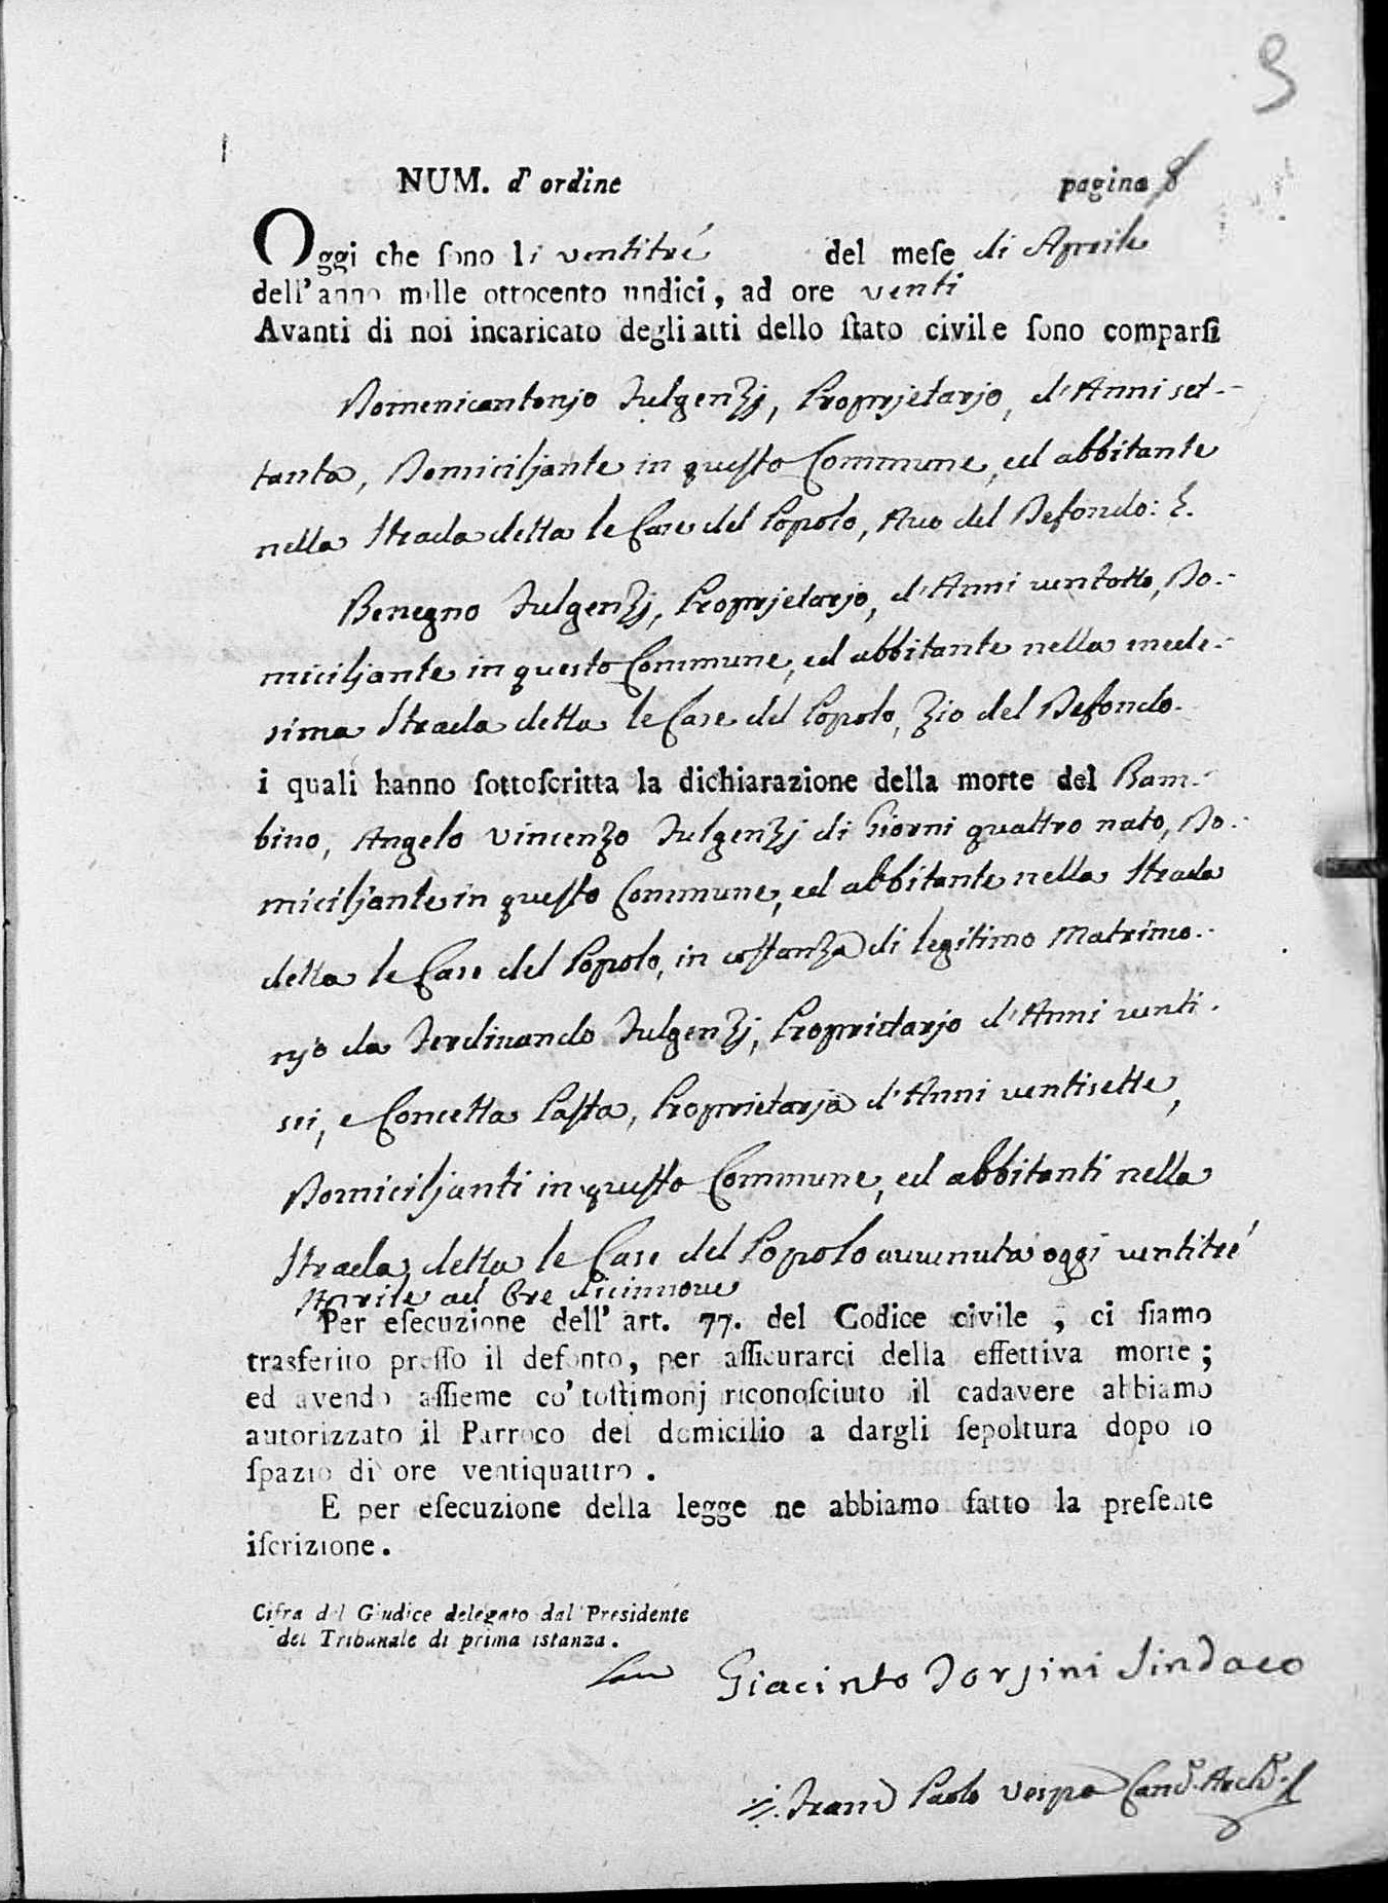 9
NUM. d' ordine pagina 8
Oggi che ſono li ventitrè del meſe di Aprile
dell' anno mille ottocento undici, ad ore venti
Avanti di noi incaricato degli atti dello ſtato civile ſono comparſi
Domenicantonjo Fulgenzj, Proprjetarjo, d'Anni set-
tanta, Domiciljante in queſto Commune, ed abbitante
nella Strada detta le Case del Popolo, Avo del Defondo: E.
Benegno Fulgenzj, Proprjetarjo, d'Anni ventotto, Do-
miciljante in questo Commune, ed abbitante nella mede-
sima Strada detta le Case del Popolo, Zio del Defondo.
i quali hanno ſottoſcritta la dichiarazione della morte del Bam-
bino, Angelo Vincenzo Fulgenzj di Giorni quattro nato, Do-
miciljante in queſto Commune, ed abbitante nella Strada
detta le Case del Popolo, in coſtanza di legitimo Matrimo-
njo da Ferdinando Fulgenzj, Proprietarjo d'Anni venti-
sei, e Concetta Paſta, Proprietarja d'Anni ventisette,
Domiciljanti in queſto Commune, ed abbitanti nella
Strada detta le Case del Popolo avvenuta oggi ventitrè
Aprile ad Ore dicinnove
Per eſecuzione dell' art. 77. del Codice civile, ci ſiamo
trasferito preſſo il defonto, per aſſicurarci della effettiva morte;
ed avendo aſſieme co' toſtimonj riconoſciuto il cadavere abbiamo
autorizzato il Parroco del domicilio a dargli ſepoltura dopo lo
ſpazio di ore ventiquattro.
E per eſecuzione della legge ne abbiamo fatto la preſente
iſcrizione.
Cifra del Giudice delegato dal Presidente
del Tribunale di prima istanza.
Giacinto Dorsini Sindaco
Paolo Vespa Canc. Arch.